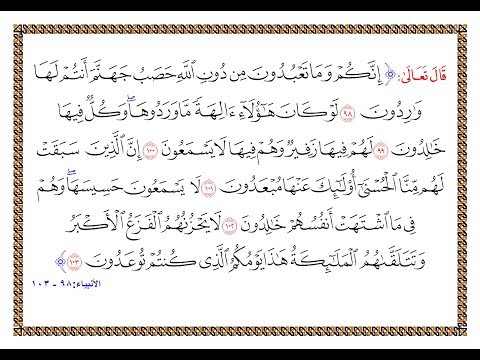 قَالَ تَعَالَىٰ: ﴿ إِنَّكُمْ وَمَا تَعْبُدُونَ مِن دُونِ ٱللَّهِ حَصَبُ جَهَنَّمَ أَنتُمْ لَهَا
وَٰرِدُونَ ٩٨ لَوْ كَانَ هَٰٓؤُلَآءِ ءَالِهَةً مَّا وَرَدُوهَا ۖ وَكُلٌّ فِيهَا
خَٰلِدُونَ ٩٩ لَهُمْ فِيهَا زَفِيرٌ وَهُمْ فِيهَا لَا يَسْمَعُونَ ١٠٠ إِنَّ ٱلَّذِينَ سَبَقَتْ
لَهُم مِّنَّا ٱلْحُسْنَىٰٓ أُو۟لَٰٓئِكَ عَنْهَا مُبْعَدُونَ ١٠١ لَا يَسْمَعُونَ حَسِيسَهَا ۖ وَهُمْ
فِى مَا ٱشْتَهَتْ أَنفُسُهُمْ خَٰلِدُونَ ١٠٢ لَا يَحْزُنُهُمُ ٱلْفَزَعُ ٱلْأَكْبَرُ
وَتَتَلَقَّىٰهُمُ ٱلْمَلَٰٓئِكَةُ هَٰذَا يَوْمُكُمُ ٱلَّذِى كُنتُمْ تُوعَدُونَ ١٠٣ ﴾
الأنبياء: ٩٨ - ١٠٣